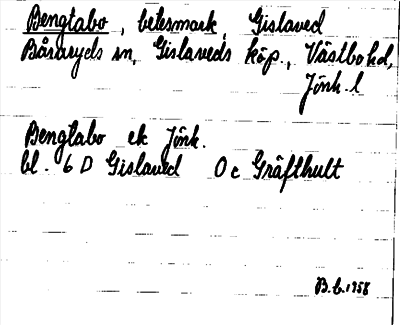 Bengtabo, betesmark, Gislaved
Båraryds sn, Gislaveds köp., Västbo hd,
Jönk. l
Bengtabo ek Jönk.
bl. 6 D Gislaved 0 c Gräfthult
B.E. 1958